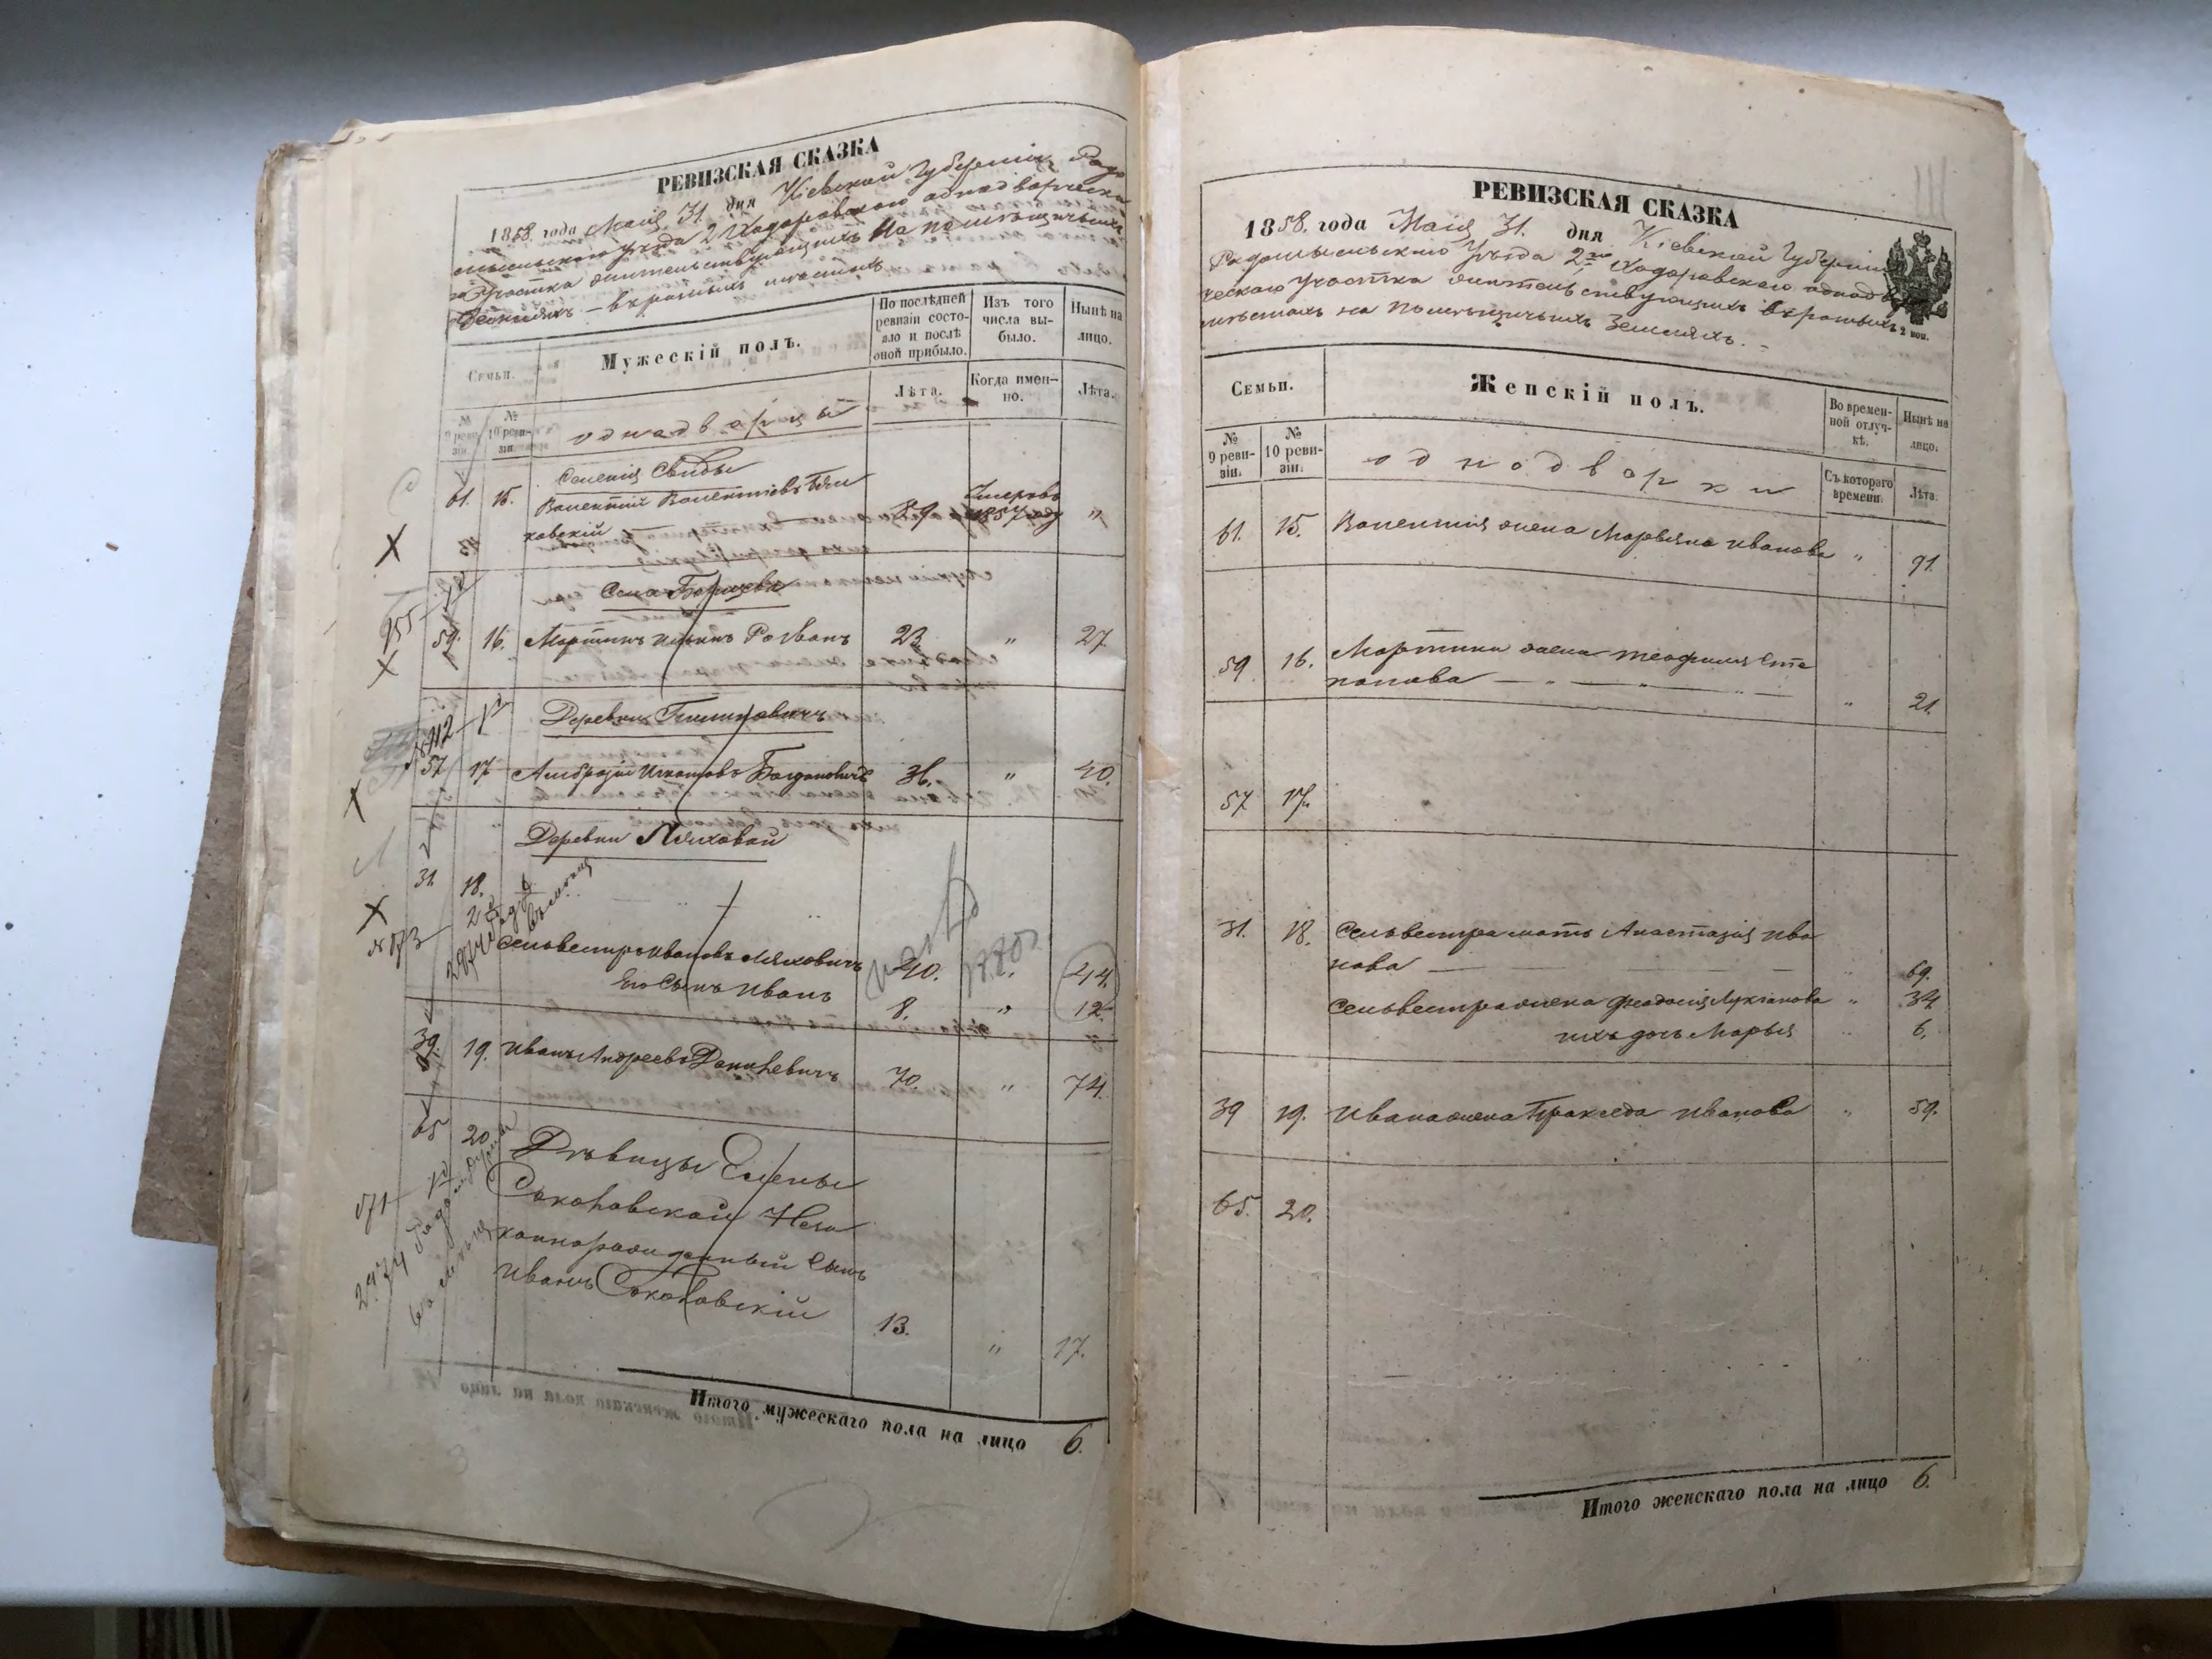 РЕВИЗСКАЯ СКАЗКА
1858. года Маія 31. дня Кіевской Губерніи Радо
мысльскаго Уѣзда 2 Ходоровскаго однодворческа
го Участка жительствующихъ На помѣщичьихъ
Земляхъ – въ разныхъ мѣстахъ
Семьи.
Мужескій полъ.
По послѣдней ревизіи состояло и послѣ оной прибыло.
Изъ того числа выбыло.
Нынѣ на лицо.
№ 9 ревизіи.
№ 10 ревизіи.
однодворцы
Лѣта.
Когда именно.
Лѣта.
Селенія Свиды
61. 15. Валентій Валентіевъ
ховскій 89 Умеръ въ 1857 году "
Села
59. 16. Мартинъ 23 " 27.
Деревни
№112
57 17 Амброзій Игнатовъ Богдановичъ 36. " 40.
Деревни Ляховой
31. 18.
Сельвестръ Ивановъ Ляховичъ 40. " 44.
Его Сынъ Иванъ 8. " 12.
39. 19. Иванъ Андреевъ Данилевичъ 70. " 74.
65 20. Дѣвицы Елены
Соколовской Неза
коннорожденный Сынъ
Иванъ Соколовскій 13. " 17.
Итого мужескаго пола на лицо 6.
РЕВИЗСКАЯ СКАЗКА
1858. года Маія 31. дня Кіевской Губерніи
Радомысльскаго Уѣзда 2го Ходоровскаго однодвор
ческаго Участка жительствующихъ въ разныхъ
мѣстахъ на Помѣщичьихъ Земляхъ. –
Семьи.
Женскій полъ.
Во временной отлучкѣ.
Нынѣ на лицо.
№ 9 ревизіи.
№ 10 ревизіи.
однодворки
Съ котораго времени.
Лѣта.
61. 15. Валентія жена Марьяна Иванова " 91.
59 16. Мартина жена Теофиля Сте
панова " 21.
57 17.
31. 18. Сельвестра мать Анастазія Ива
нова " 69.
Сельвестра жена Феодосія Лукіанова " 34
ихъ дочь Марья " 6.
39 19. Ивана жена Пракседа Иванова " 59.
65. 20.
Итого женскаго пола на лицо 6.